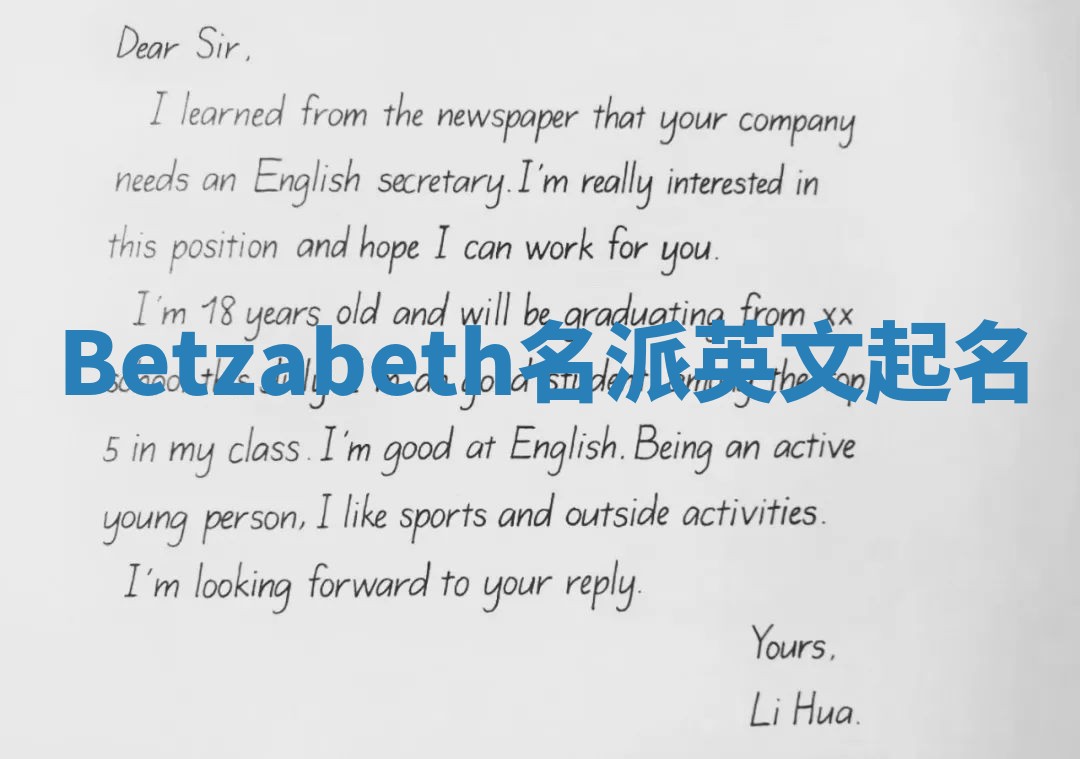 Dear Sir,
I learned from the newspaper that your company
needs an English secretary. I'm really interested in
this position and hope I can work for you.
I'm 18 years old and will be graduating from xx
Betzabeth名派英文起名
school this July. I'm a good student among the top
5 in my class. I'm good at English. Being an active
young person, I like sports and outside activities.
I'm looking forward to your reply.
Yours,
Li Hua.